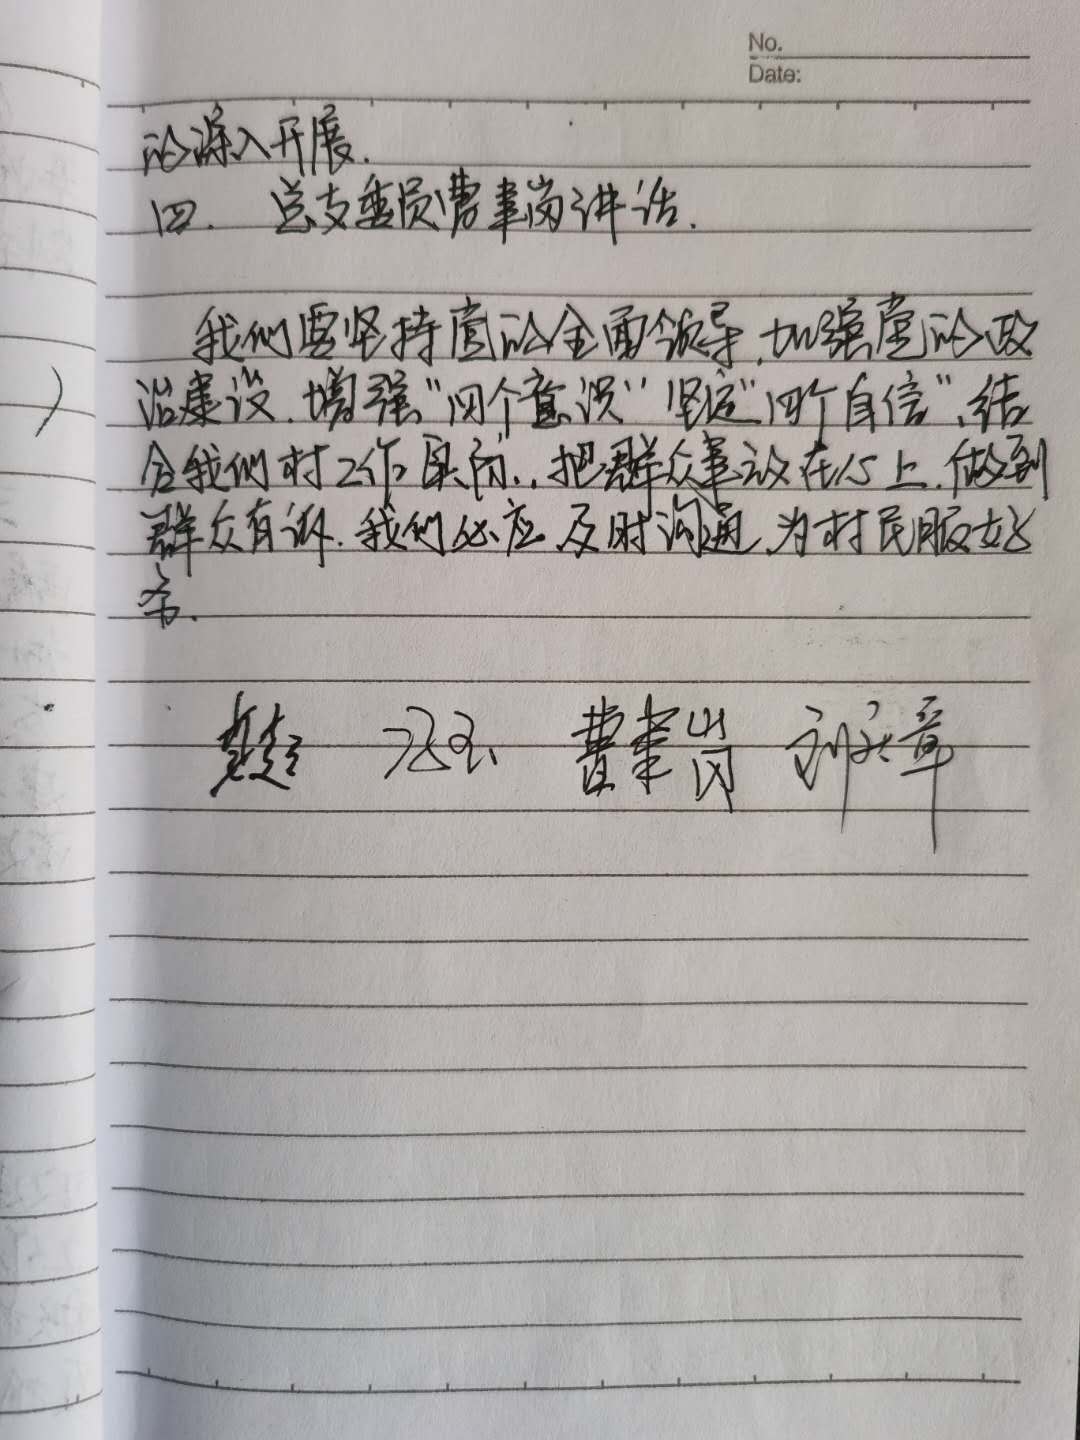 No.
Date:
论深入开展.
四. 总支委员曹聿岗讲话.
我们要坚持党的全面领导.加强党的政
治建设.增强"四个意识"坚定"四个自信",结
合我们村工作实际,.把群众事放在心上.做到
群众有诉.我们必应.及时沟通.为村民服好
务.
曹聿岗 刘 章